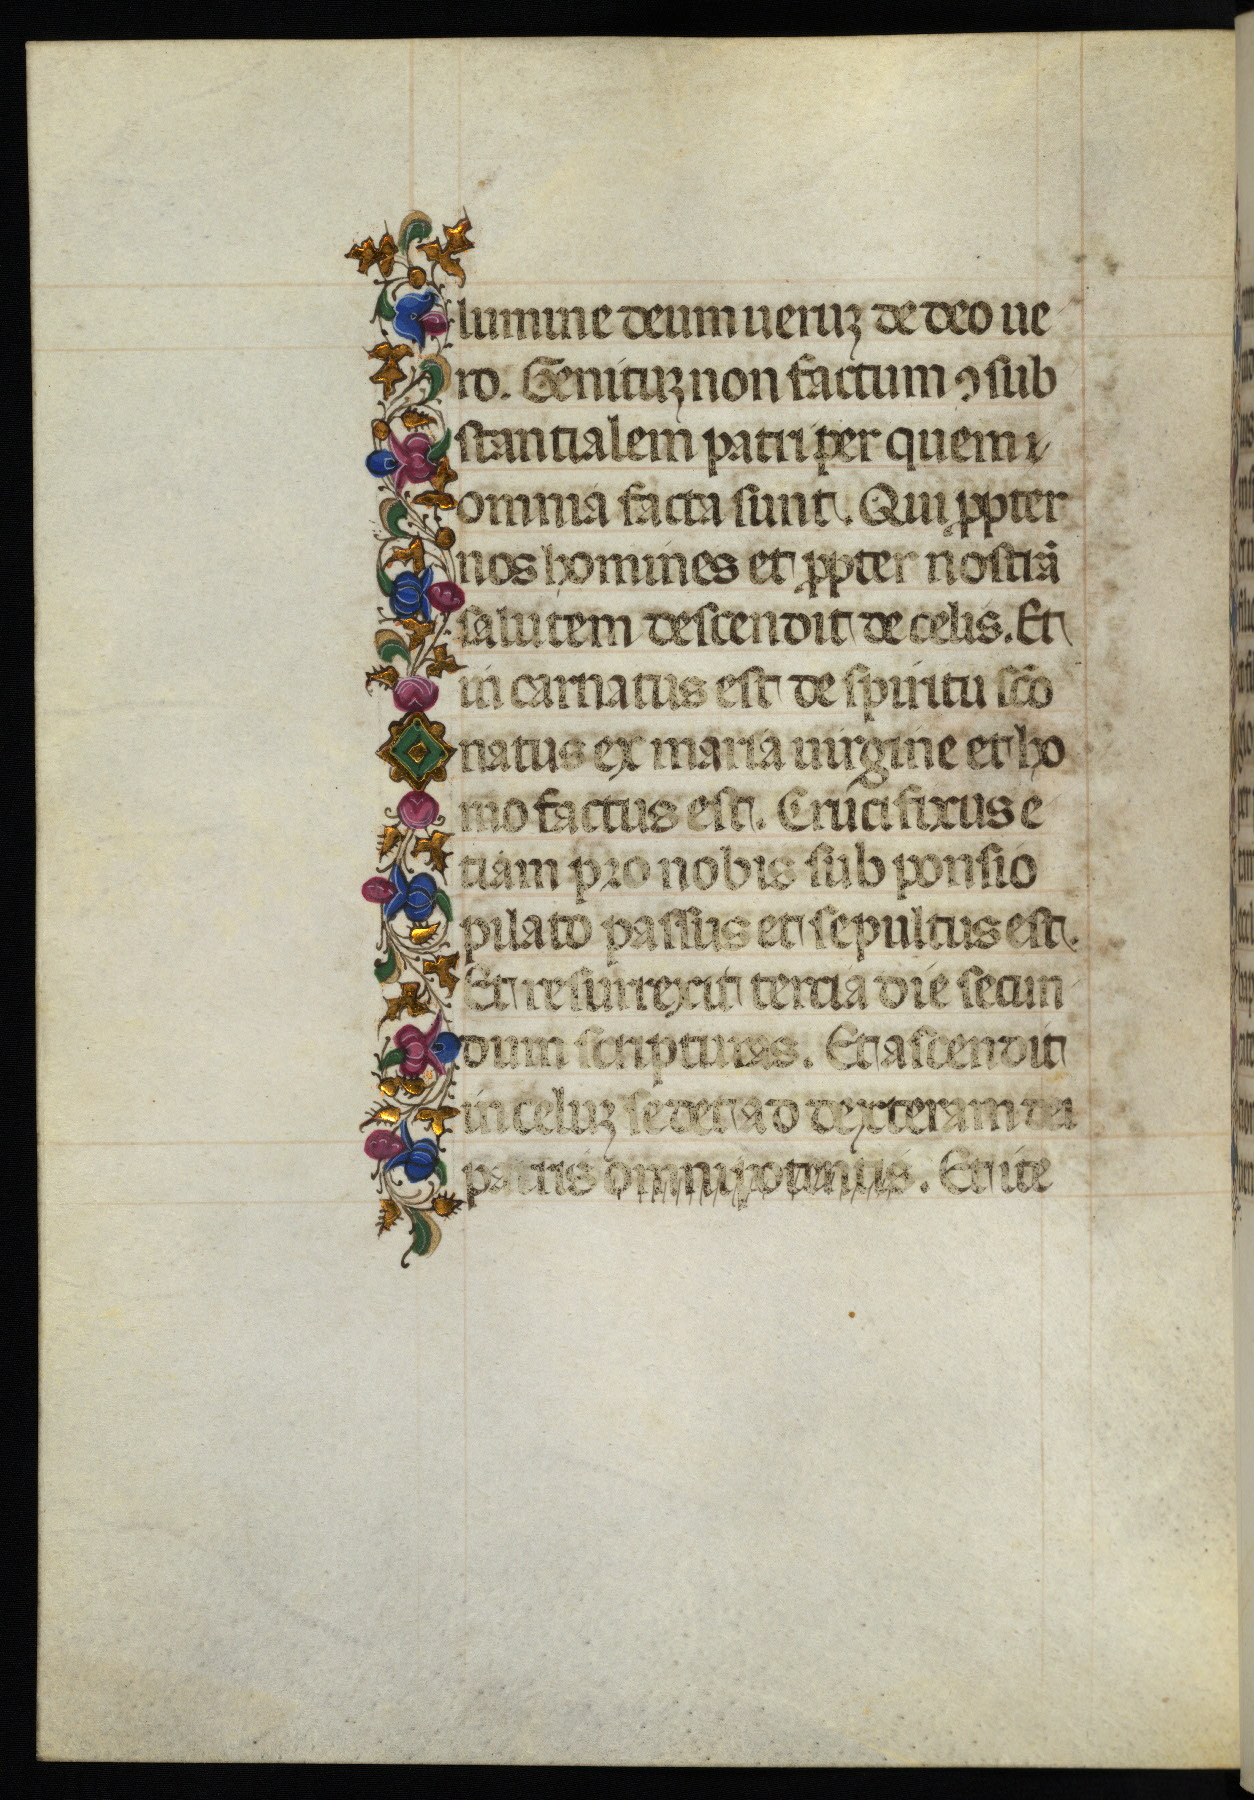 lumine deum ueruꝫ de deo ue
ro. Genituꝫ non factum ꝯsub
stantialem patri per quem ꝛ
omnia facta sunt. Qui ꝓpter
nos homines et ꝓpter nostrā
salutem descendit de celis. Et
in carnatus est de spiritu sc̄o
natus ex maria uirgine et ho
mo factus est. Cruci fixus e
tiam pro nobis sub ponsio
pilato passus et sepultus est.
Et resurrexit tercia die secun
dum scripturas. Et ascendit
in celuꝫ sedet ad dexteram dei
patris omnipotentis. Et ite